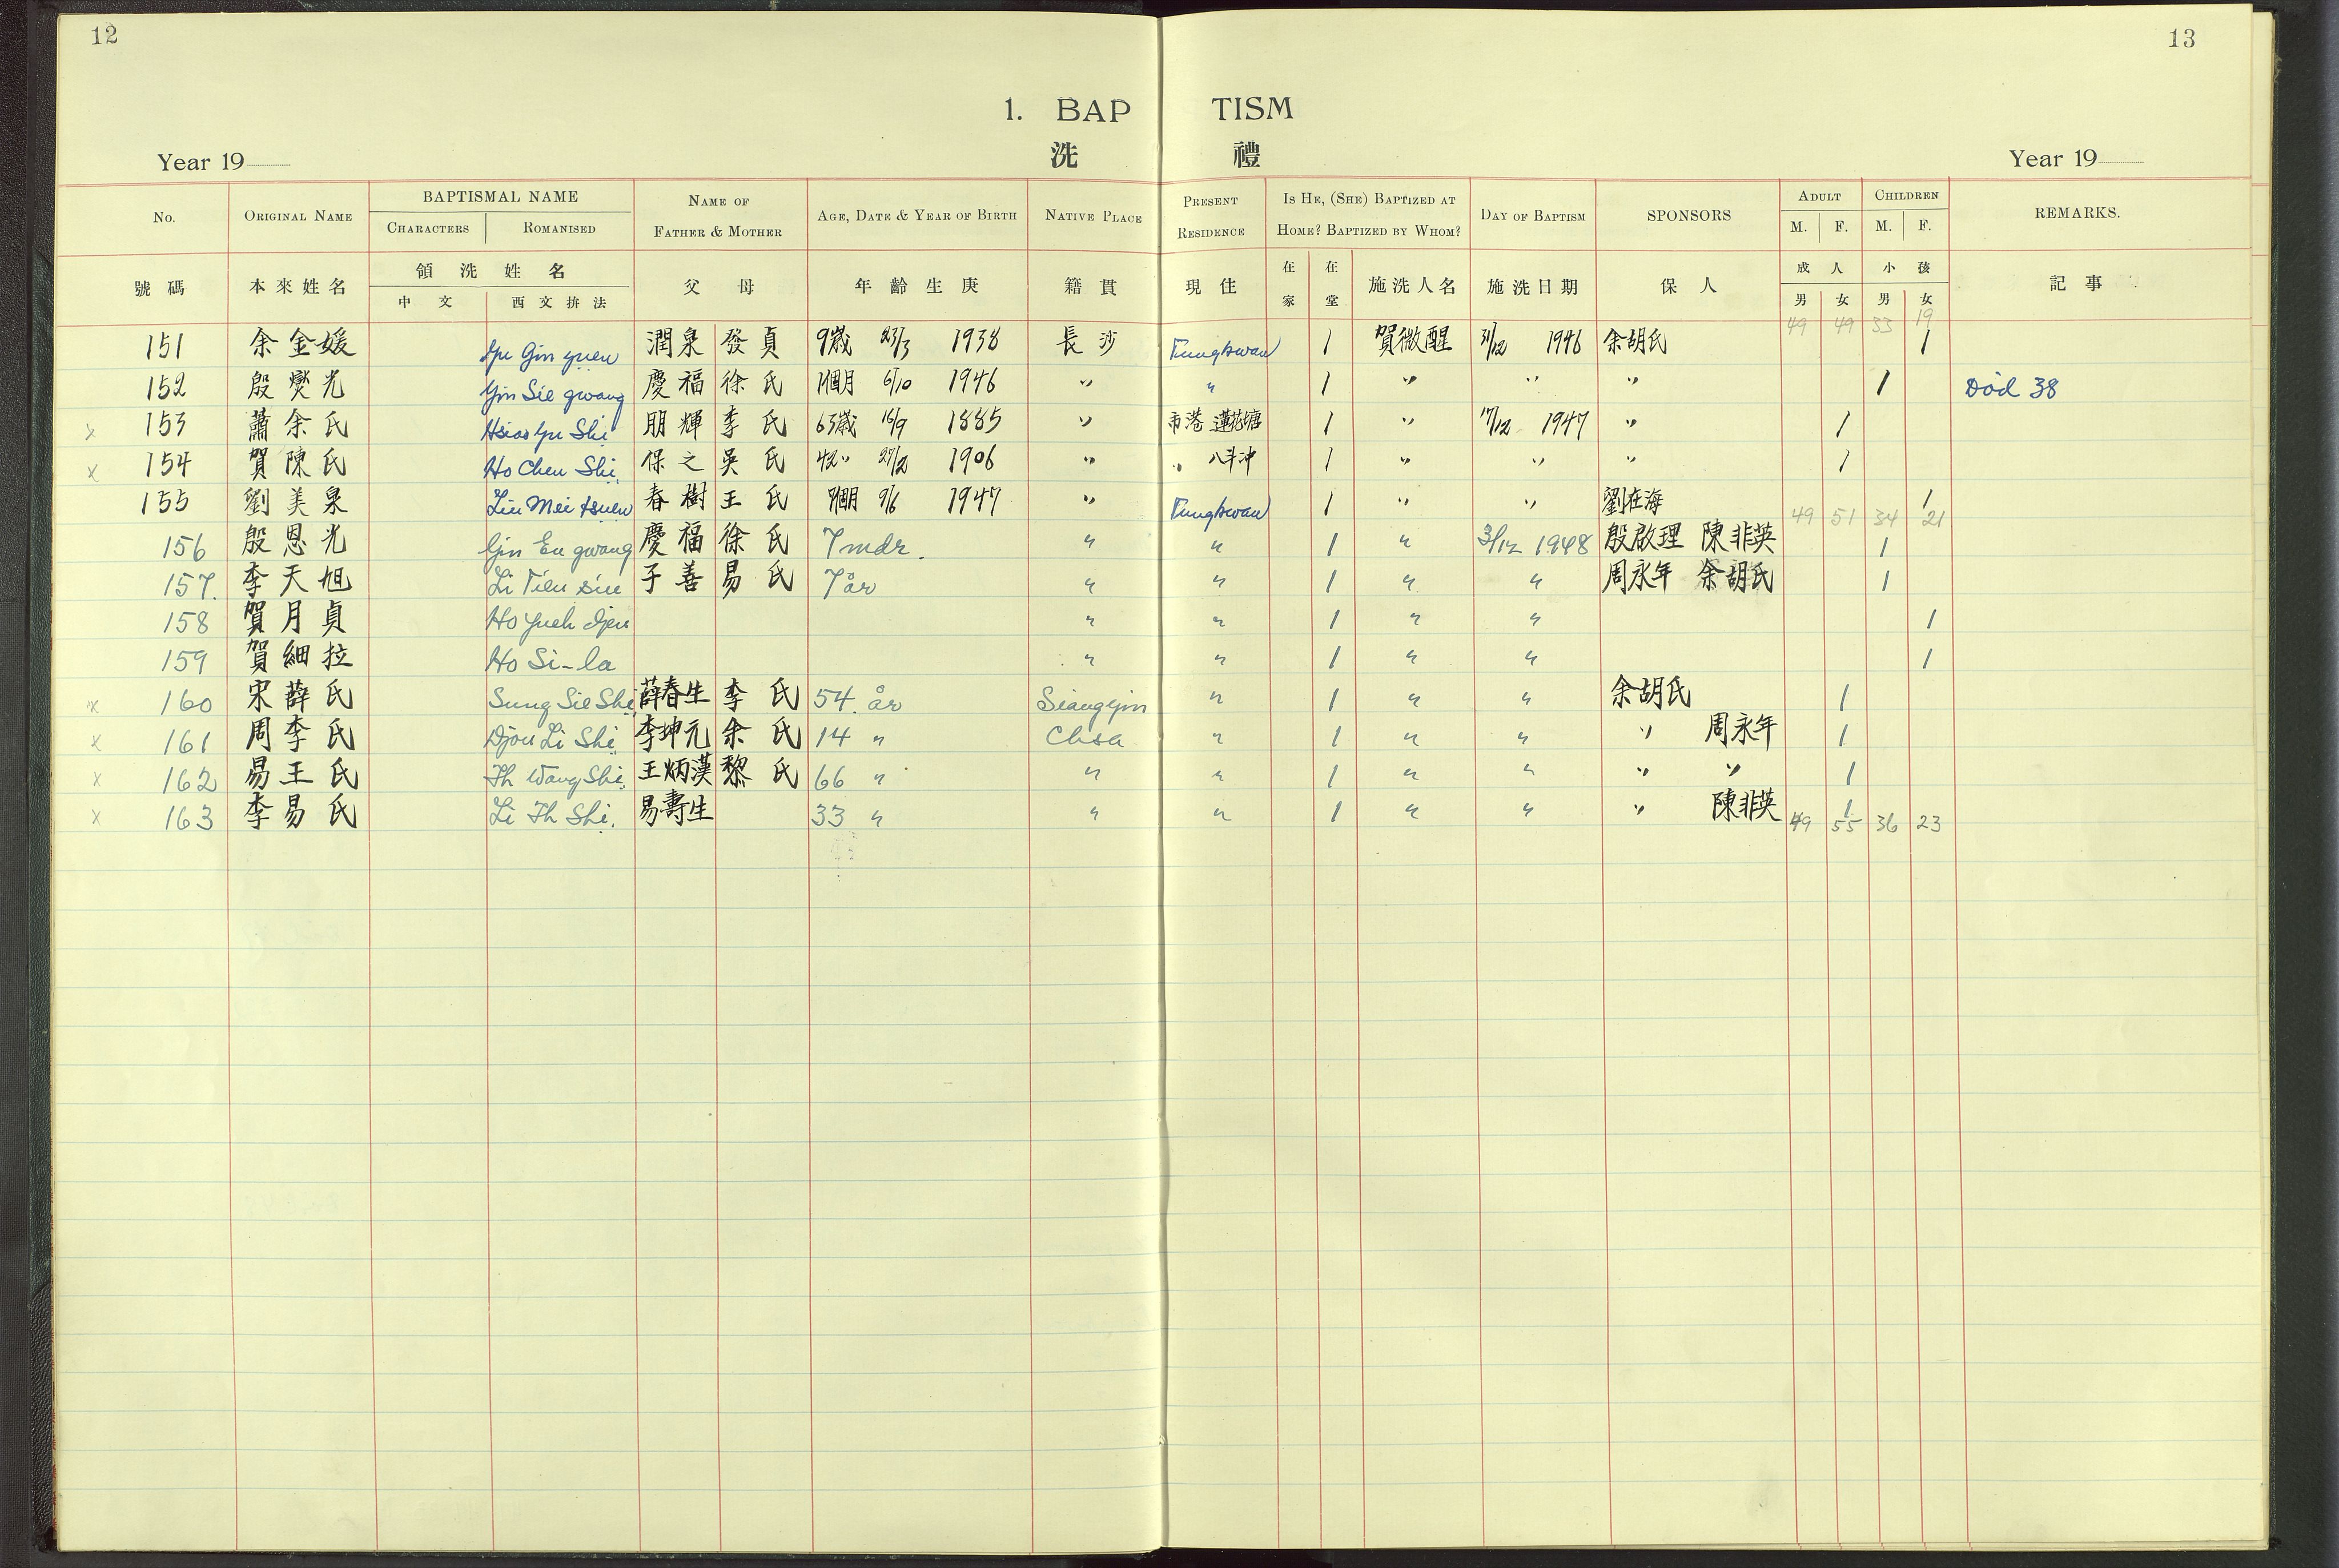 12
13
1. BAP TISM
洗 禮
Year 19
Year 19
No. ORIGINAL NAME BAPTISMAL NAME CHARACTERS ROMANISED NAME OF FATHER & MOTHER AGE, DATE & YEAR OF BIRTH NATIVE PLACE PRESENT RESIDENCE IS HE, (SHE) BAPTIZED AT HOME? BAPTIZED BY WHOM? DAY OF BAPTISM SPONSORS ADULT M. F. CHILDREN M. F. REMARKS.
號碼 本來姓名 領洗姓名 中文 西文拚法 父母 年齡生庚 籍貫 現住 在家 在堂 施洗人名 施洗日期 保人 成人 男 女 小孩 男 女 記事
49 49 33 19
151 余金媛 Yu Gin yuen 潤泉 發貞 9歲 23/3 1938 長沙 Fungkwan 1 賀微醒 31/12 1946 余胡氏 1
152 殷爕光 Yin Sie gwang 慶福 徐氏 1個月 6/10 1946 〃 〃 1 〃 〃 〃 1 Død 38
x 153 蕭余氏 Hsiao Yu Shi 朋輝 李氏 63歲 16/9 1885 〃 市港 蓮花塘 1 〃 17/12 1947 〃 1
x 154 賀陳氏 Ho Chen Shi. 保之 吳氏 42〃 27/2 1906 〃 〃 八斗冲 1 〃 〃 〃 1
155 劉美泉 Liu Mei tsuen 春樹 王氏 7個月 9/6 1947 〃 Fungkwan 1 〃 〃 劉在海 1
49 51 34 21
156 殷恩光 Yin En gwang 慶福 徐氏 7 mdr. 〃 〃 1 〃 3/12 1948 殷啟理 陳非英 1
157. 李天旭 Li Tien siu 子善 易氏 7 år 〃 〃 1 〃 〃 周永年 余胡氏 1
158 賀月貞 Ho Yueh djen 〃 〃 1 〃 〃 1
159 賀細拉 Ho Si-la 〃 〃 1 〃 〃 1
x 160 宋薛氏 Sung Sie Shi 薛春生 李氏 54. år Siangyin 〃 1 〃 〃 余胡氏 1
x 161 周李氏 Djou Li Shi 李坤元 余氏 14 〃 Chsa 〃 1 〃 〃 〃 周永年 1
x 162 易王氏 Ih Wang Shi. 王炳漢 黎氏 66 〃 〃 〃 1 〃 〃 〃 〃 1
x 163 李易氏 Li Ih Shi. 易壽生 33 〃 〃 〃 1 〃 〃 〃 陳非英 1
49 55 36 23